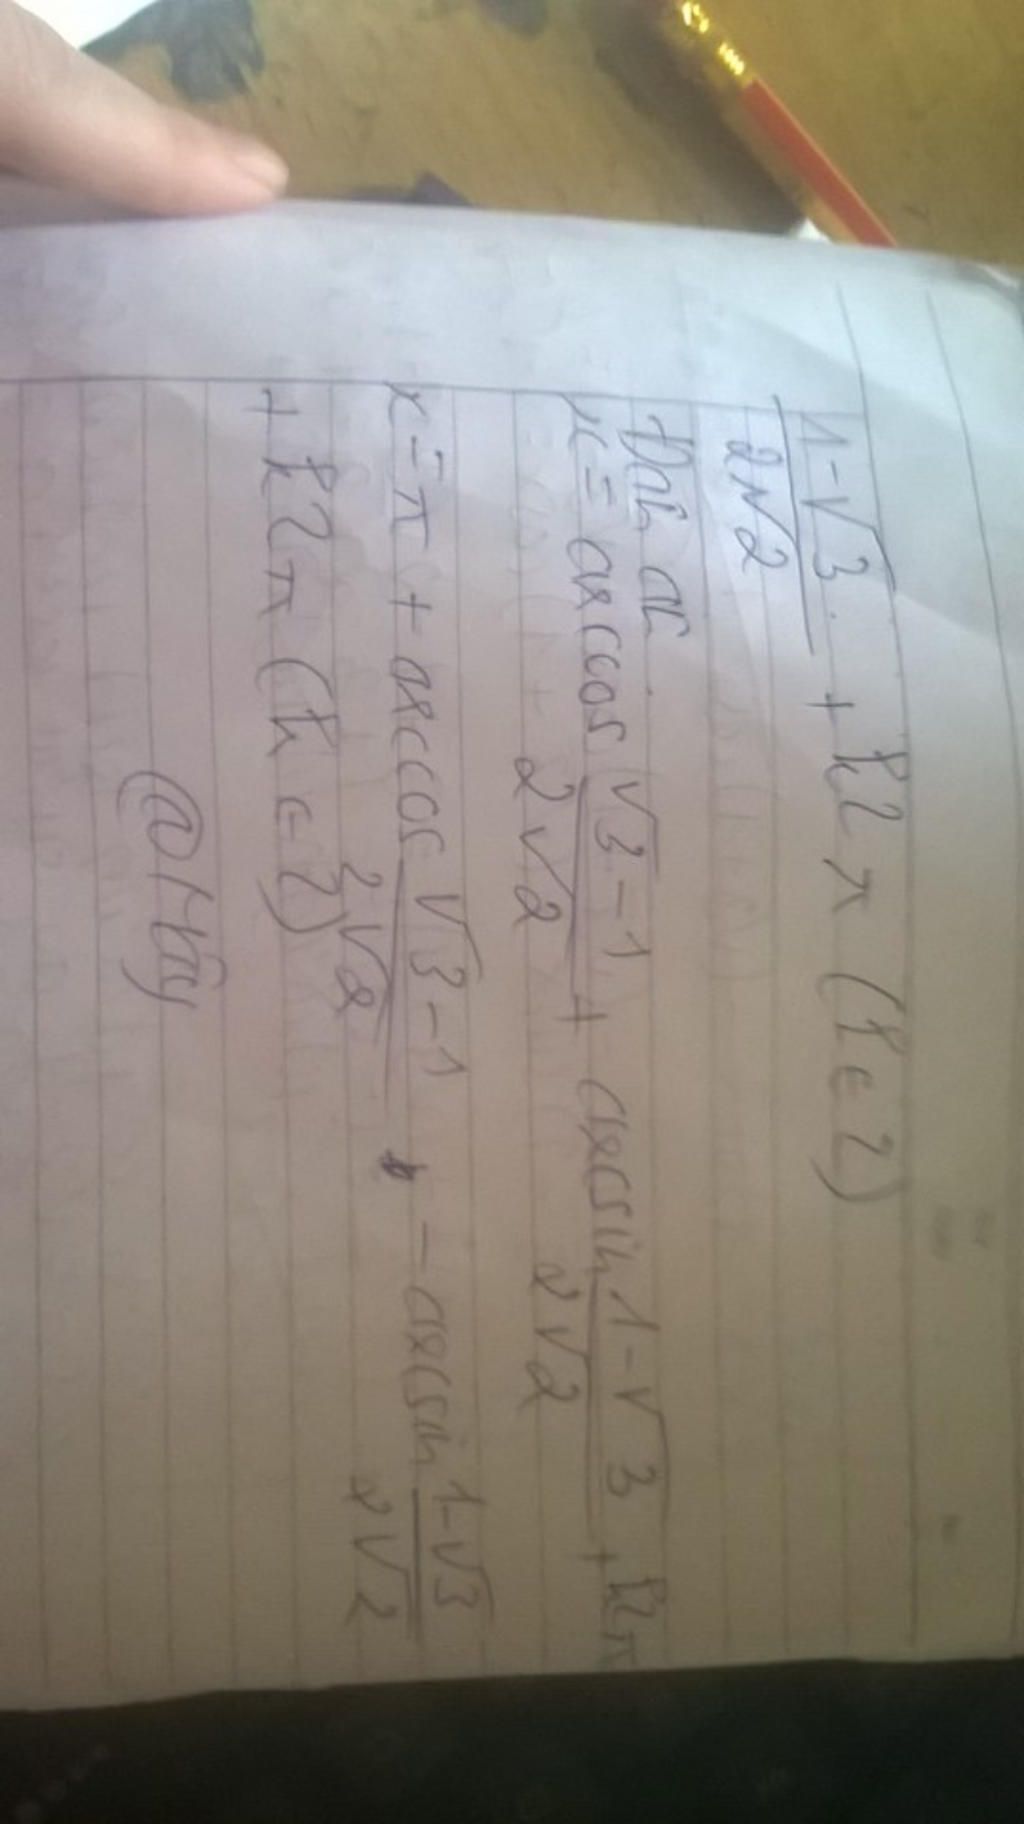 1-√3 / 2√2 + k2π (k ∈ Z)
Đáp án:
x = arccos √3-1 / 2√2 + arcsin 1-√3 / 2√2 + k2π
x = π + arccos √3-1 / 2√2 - arcsin 1-√3 / 2√2
+ k2π (k ∈ Z)